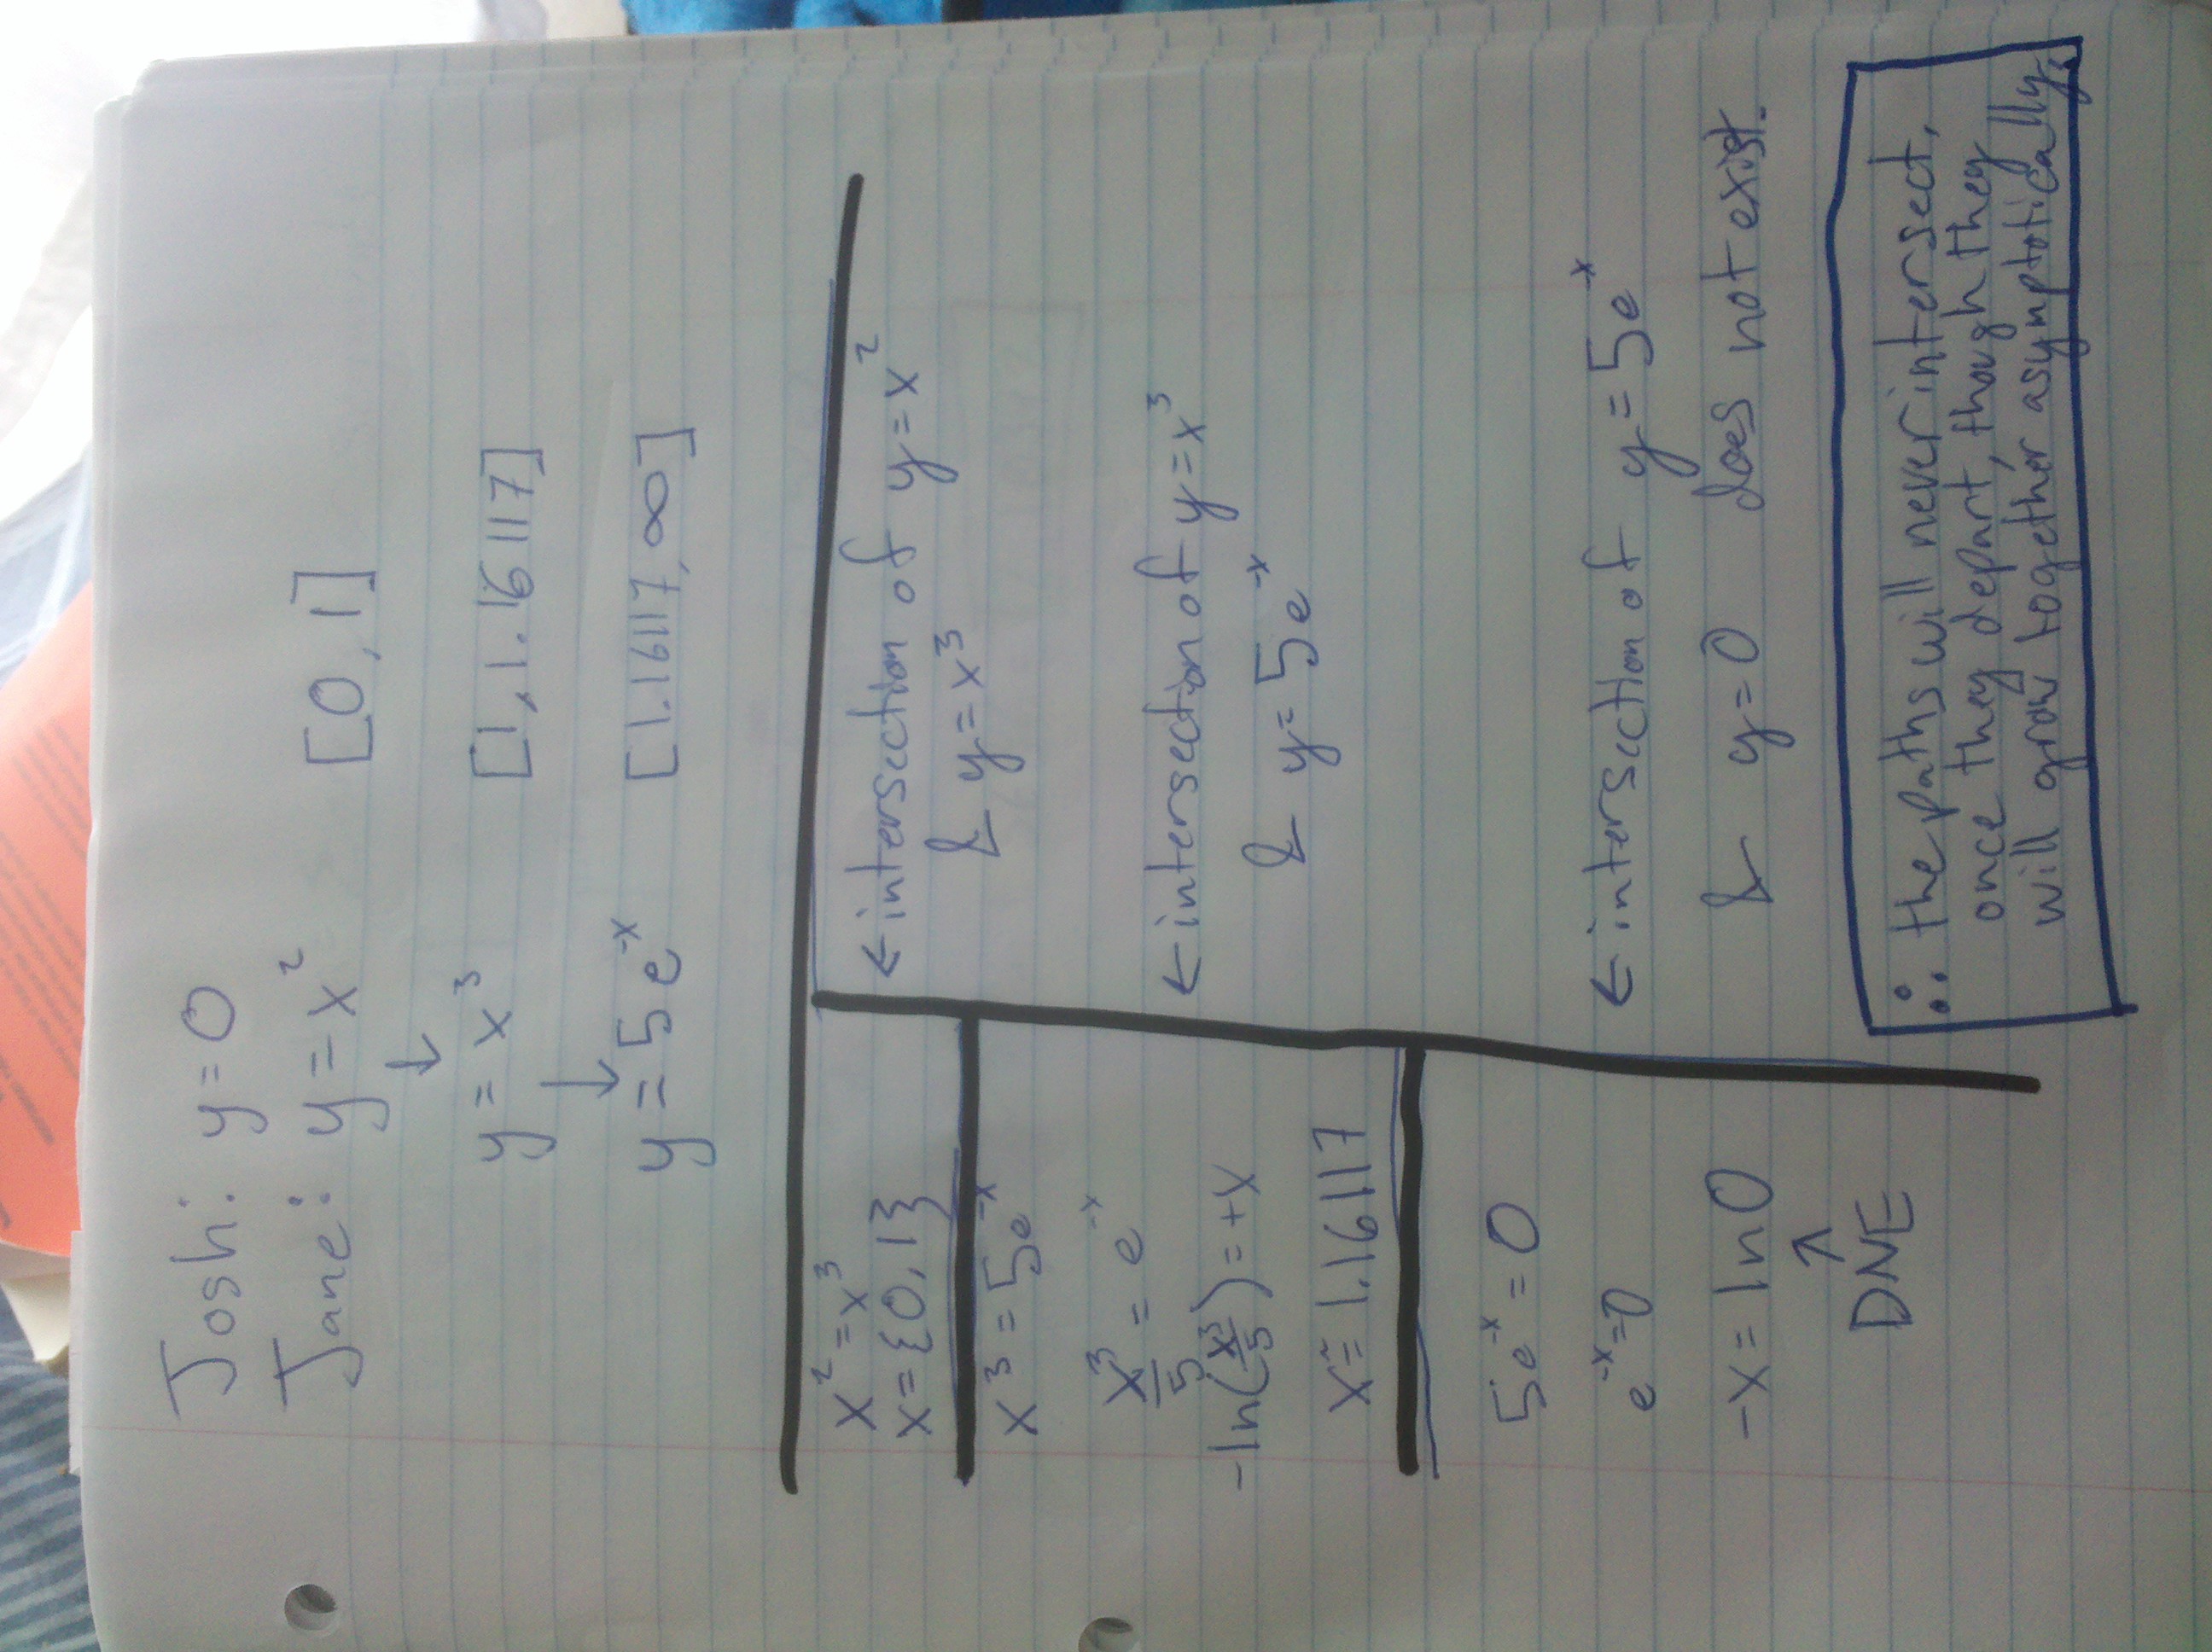 Josh: y=0
Jane: y=x² [0,1]
↓
y=x³ [1,1.16117]
↓
y=5e⁻ˣ [1.16117,∞]
x²=x³
x={0,1}
←intersection of y=x²
& y=x³
x³=5e⁻ˣ
x³/5 = e⁻ˣ
-ln(x³/5)=+x
x≅1.16117
←intersection of y=x³
& y=5e⁻ˣ
5e⁻ˣ=0
e⁻ˣ=0
-x=ln0
↑
DNE
←intersection of y=5e⁻ˣ
& y=0 does not exist.
∴ the paths will never intersect,
once they depart, though they
will grow together asymptotically.